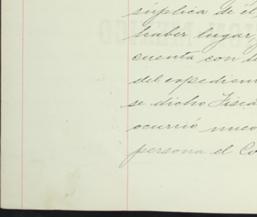 súplica de él
haber lugar,
cuenta con
del expedien
se dicho Fisca
ocurrió nuev
persona el Co